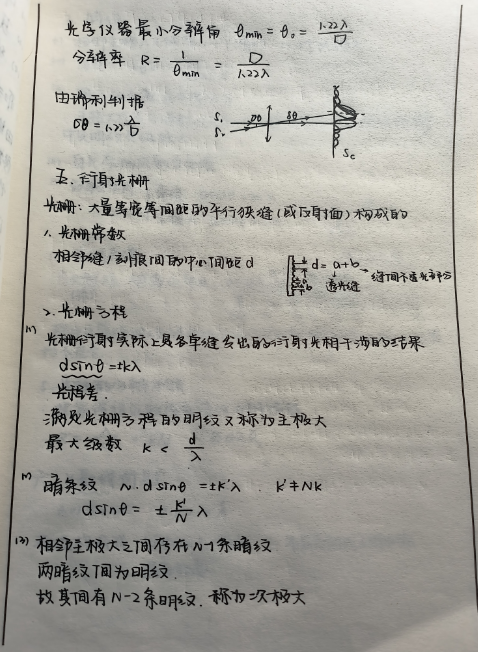 光学仪器最小分辨角 θmin = θ₀ = 1.22λ/D
分辨率 R = 1/θmin = D/1.22λ
由瑞利判据
δθ = 1.22 λ/D
S₁
S₂
δθ
δθ
Sc
五、衍射光栅
光栅：大量等宽等间距的平行狭缝(或反射面)构成的
1、光栅常数
相邻缝/刻痕间的中心间距 d
d = a+b
缝间不透光部分
透光缝
a
b
2、光栅方程
(1)
光栅衍射实际上是各单缝发出的衍射光相干涉的结果
dsinθ = ±kλ
光程差.
满足光栅方程的明纹又称为主极大
最大级数 k < d/λ
(2) 暗条纹 N·dsinθ = ±k'λ . k' ≠ Nk
dsinθ = ± k'/N λ
(3) 相邻主极大之间存在 N-1 条暗纹
两暗纹间为明纹.
故其间有 N-2 条明纹. 称为次极大